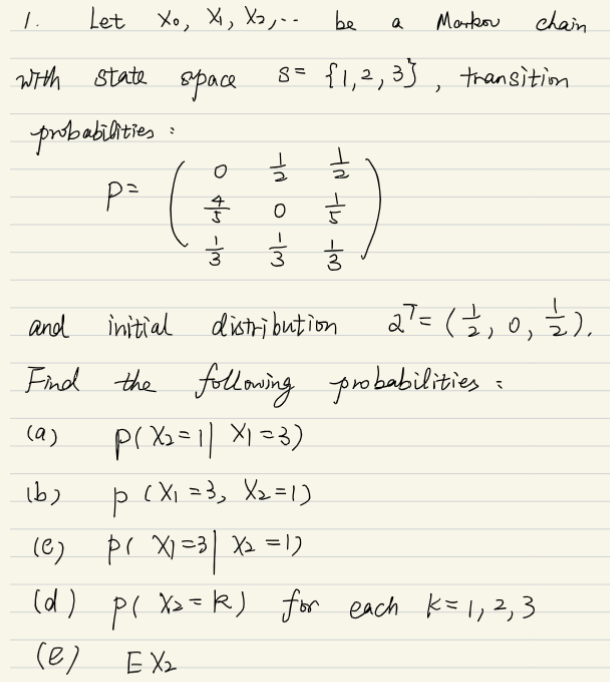 1. Let X₀, X₁, X₂, .. be a Markov chain
with state space S = {1, 2, 3}, transition
probabilities :
P = ( 0 1/2 1/2
4/5 0 1/5
1/3 1/3 1/3 )
and initial distribution 2ᵀ = (1/2, 0, 1/2).
Find the following probabilities :
(a) P( X₂ = 1 | X₁ = 3)
(b) P (X₁ = 3, X₂ = 1)
(c) P( X₁ = 3 | X₂ = 1)
(d) P( X₂ = k ) for each k = 1, 2, 3
(e) E X₂